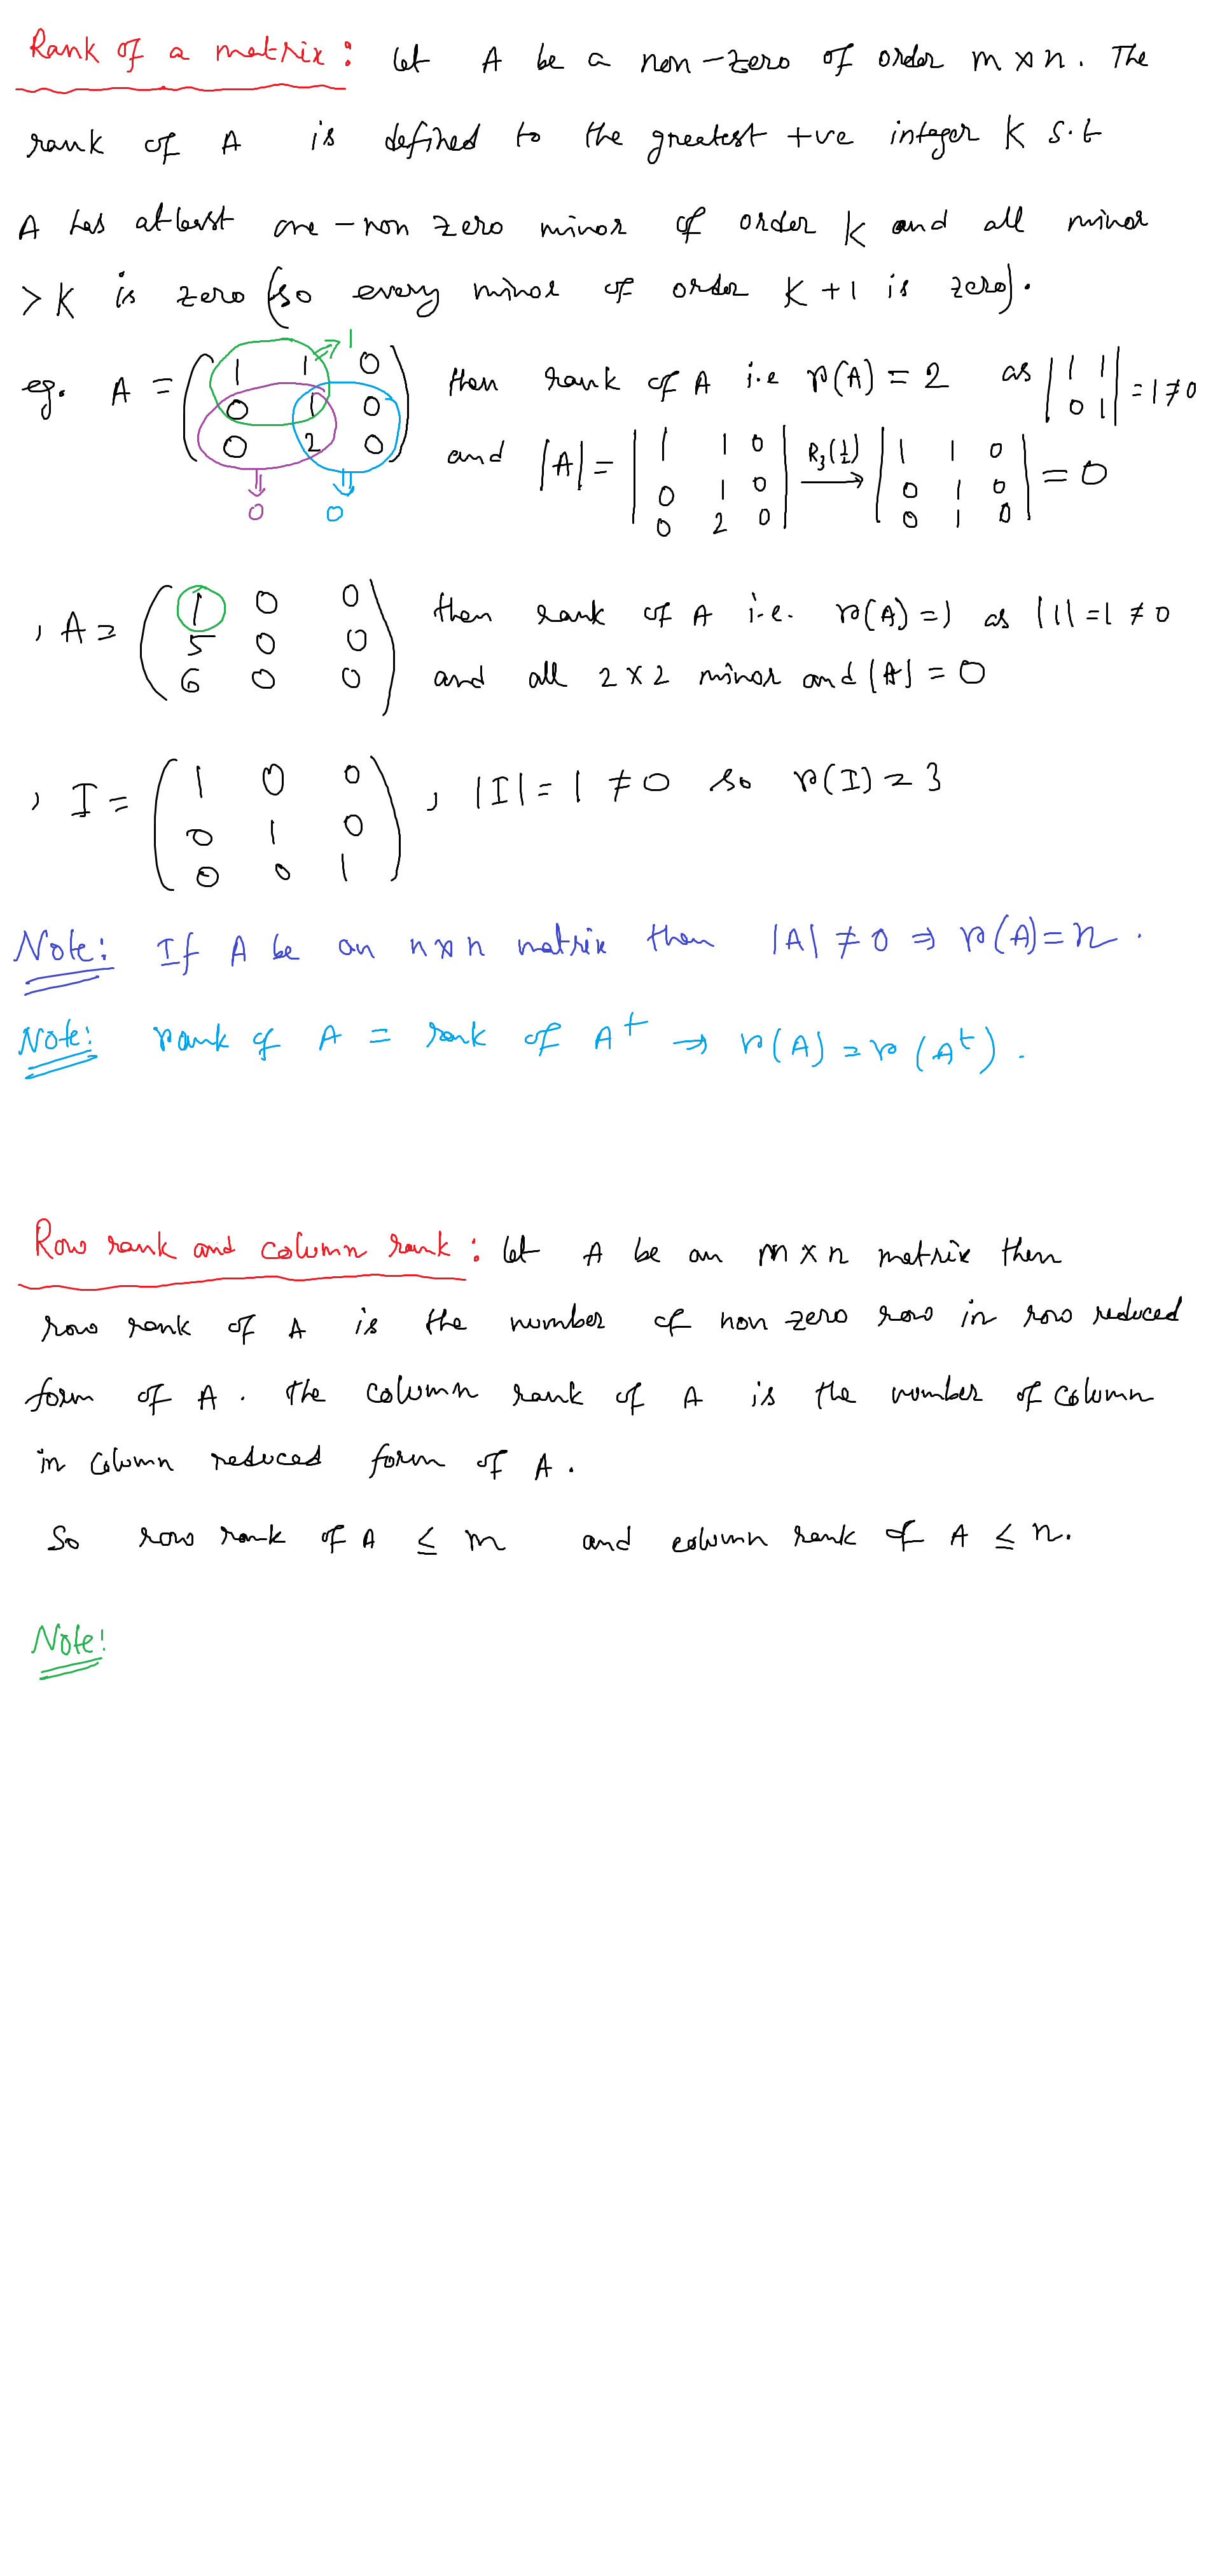 Rank of a matrix: let A be a non-zero of order m×n. The
rank of A is defined to the greatest +ve integer K s.t
A has atleast one-non zero minor of order k and all minor
>K is zero (so every minor of order K+1 is zero).
eg. A = (1 1 0 → 1 then rank of A i.e r(A) = 2 as |1 1
0 1| = 1≠0
0 1 0
0 2 0) and |A| = |1 1 0
0 1 0
0 2 0| R₃(½) → |1 1 0
0 1 0
0 1 0| = 0
⇓ 0 ⇓ 0
, A = (1 0 0
5 0 0
6 0 0) then rank of A i.e. r(A) = 1 as |1| = 1 ≠ 0
and all 2×2 minor and |A| = 0
, I = (1 0 0
0 1 0
0 0 1) , |I| = 1 ≠ 0 so r(I) = 3
Note: If A be an n×n matrix then |A| ≠ 0 ⇒ r(A) = n.
Note: rank of A = rank of Aᵗ → r(A) = r(Aᵗ).
Row rank and column rank: let A be an m×n matrix then
row rank of A is the number of non zero row in row reduced
form of A. The column rank of A is the number of column
in column reduced form of A.
So row rank of A ≤ m and column rank of A ≤ n.
Note!